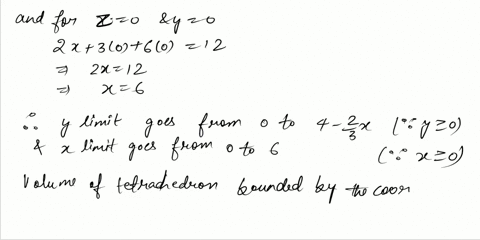 and for z=0 & y=0
2x+3(0)+6(0) = 12
⇒ 2x=12
⇒ x=6
∴ y limit goes from 0 to 4-2/3x (∵ y≥0)
& x limit goes from 0 to 6 (∵ x≥0)
Volume of tetrahedron bounded by the coor